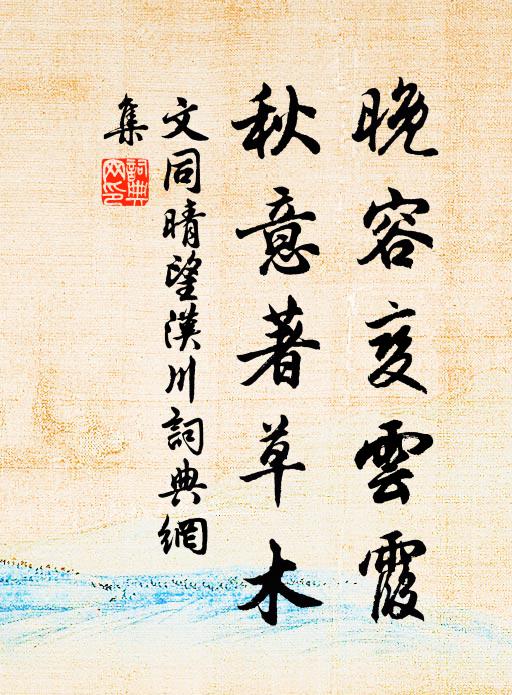 晚容变雲霞
秋意著草木
文同晴望漢川詞典網
集
詞典网印